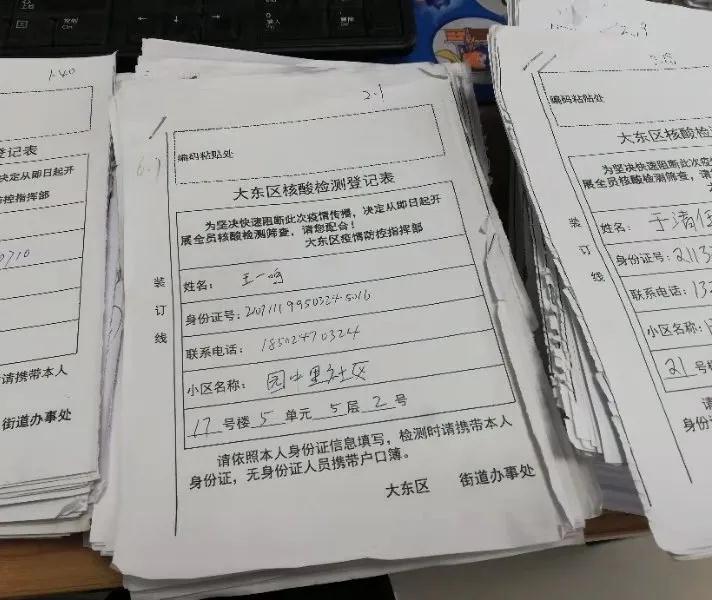 1.40
记表
决定从即日起开
控指挥部
0710
请携带本人
街道办事处
2.1
6.1
编码粘贴处
大东区核酸检测登记表
为坚决快速阻断此次疫情传播，决定从即日起开
展全员核酸检测筛查，请您配合！
大东区疫情防控指挥部
装订线
姓名： 王一鸣
身份证号：210711199503245016
联系电话： 18502470324
小区名称： 园中里社区
17 号楼 5 单元 5 层 2 号
请依照本人身份证信息填写，检测时请携带本人
身份证，无身份证人员携带户口簿。
大东区 街道办事处
2.13
编码粘贴处
大东区核酸检测
为坚决快速阻断此次疫
展全员核酸检测筛查，请
大东区
装订线
姓名：
身份证号：2113
联系电话：13
小区名称：
21 号楼
身份证